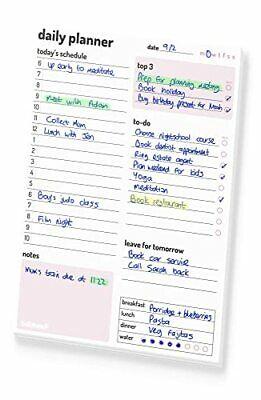 daily planner
date 9/2
m t w t f s s
today's schedule
6 up early to meditate
7
8
9 Meet with Adam
10
11 Collect Mum
12 Lunch with Jen
1
2
3
4
5
6 Boy's judo class
7
8 Film Night
9
10
notes
Mum's train due at 11:22
top 3
Prep for planning meeting
Book holiday
Buy birthday present for
to-do
Choose nightschool course
Book dentist appointment
Ring estate agent
Plan weekend for kids
Yoga
Meditation
Book restaurant
leave for tomorrow
Book car service
Call Sarah back
breakfast Porridge + blueberries
lunch Pasta
dinner Veg Fajitas
water